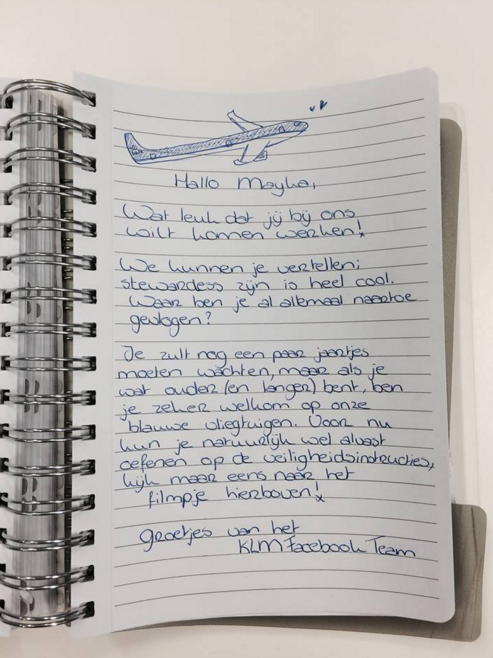 Hallo Mayke,
Wat leuk dat jij bij ons
wilt komen werken!
We kunnen je vertellen;
stewardess zijn is heel cool.
Waar ben je al allemaal naartoe
gevlogen?
Je zult nog een paar jaartjes
moeten wachten, maar als je
wat ouder (en langer) bent, ben
je zeker welkom op onze
blauwe vliegtuigen. Voor nu
kun je natuurlijk wel alvast
oefenen op de veiligheidsinstructies,
kijk maar eens naar het
filmpje hierboven!
groetjes van het
KLM Facebook Team